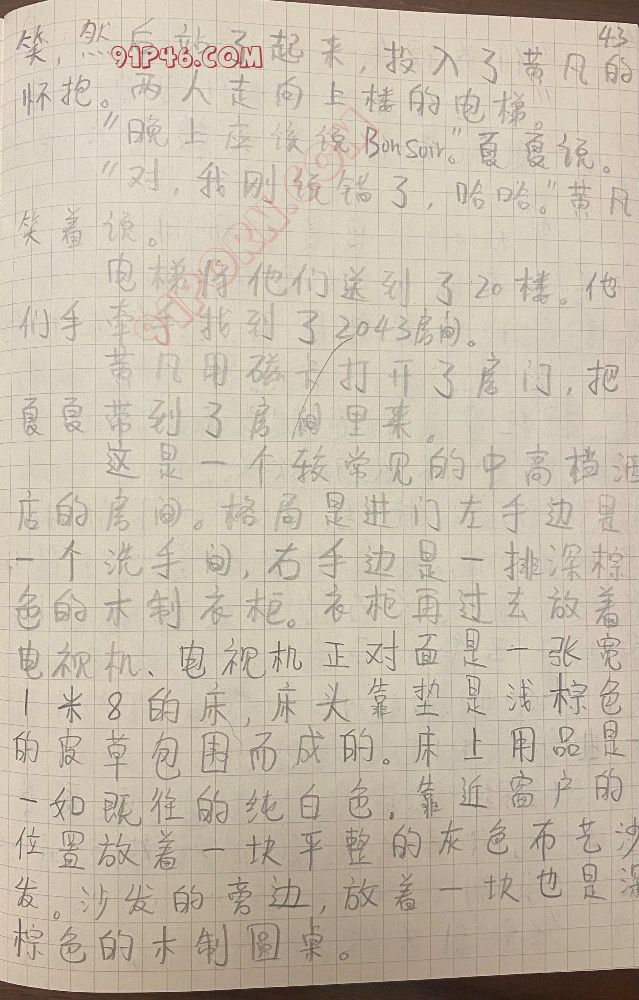 43
笑,然后站了起来,投入了黄凡的
91P46.COM
怀抱。两人走向上楼的电梯。
“晚上应该说Bonsoir。”夏夏说。
“对,我刚说错了,哈哈。”黄凡
笑着说。
91PORN.COM
电梯将他们送到了20楼。他
们手牵手找到了2043房间。
黄凡用磁卡打开了房门,把
夏夏带到了房间里来。
这是一个较常见的中高档酒
店的房间。格局是进门左手边是
一个洗手间,右手边是一排深棕
色的木制衣柜。衣柜再过去放着
电视机、电视机正对面是一张宽
1米8的床,床头靠垫是浅棕色
的皮草包围而成的。床上用品是
一如既往的纯白色。靠近窗户的
位置放着一块平整的灰色布艺沙
发。沙发的旁边,放着一块也是深
棕色的木制圆桌。